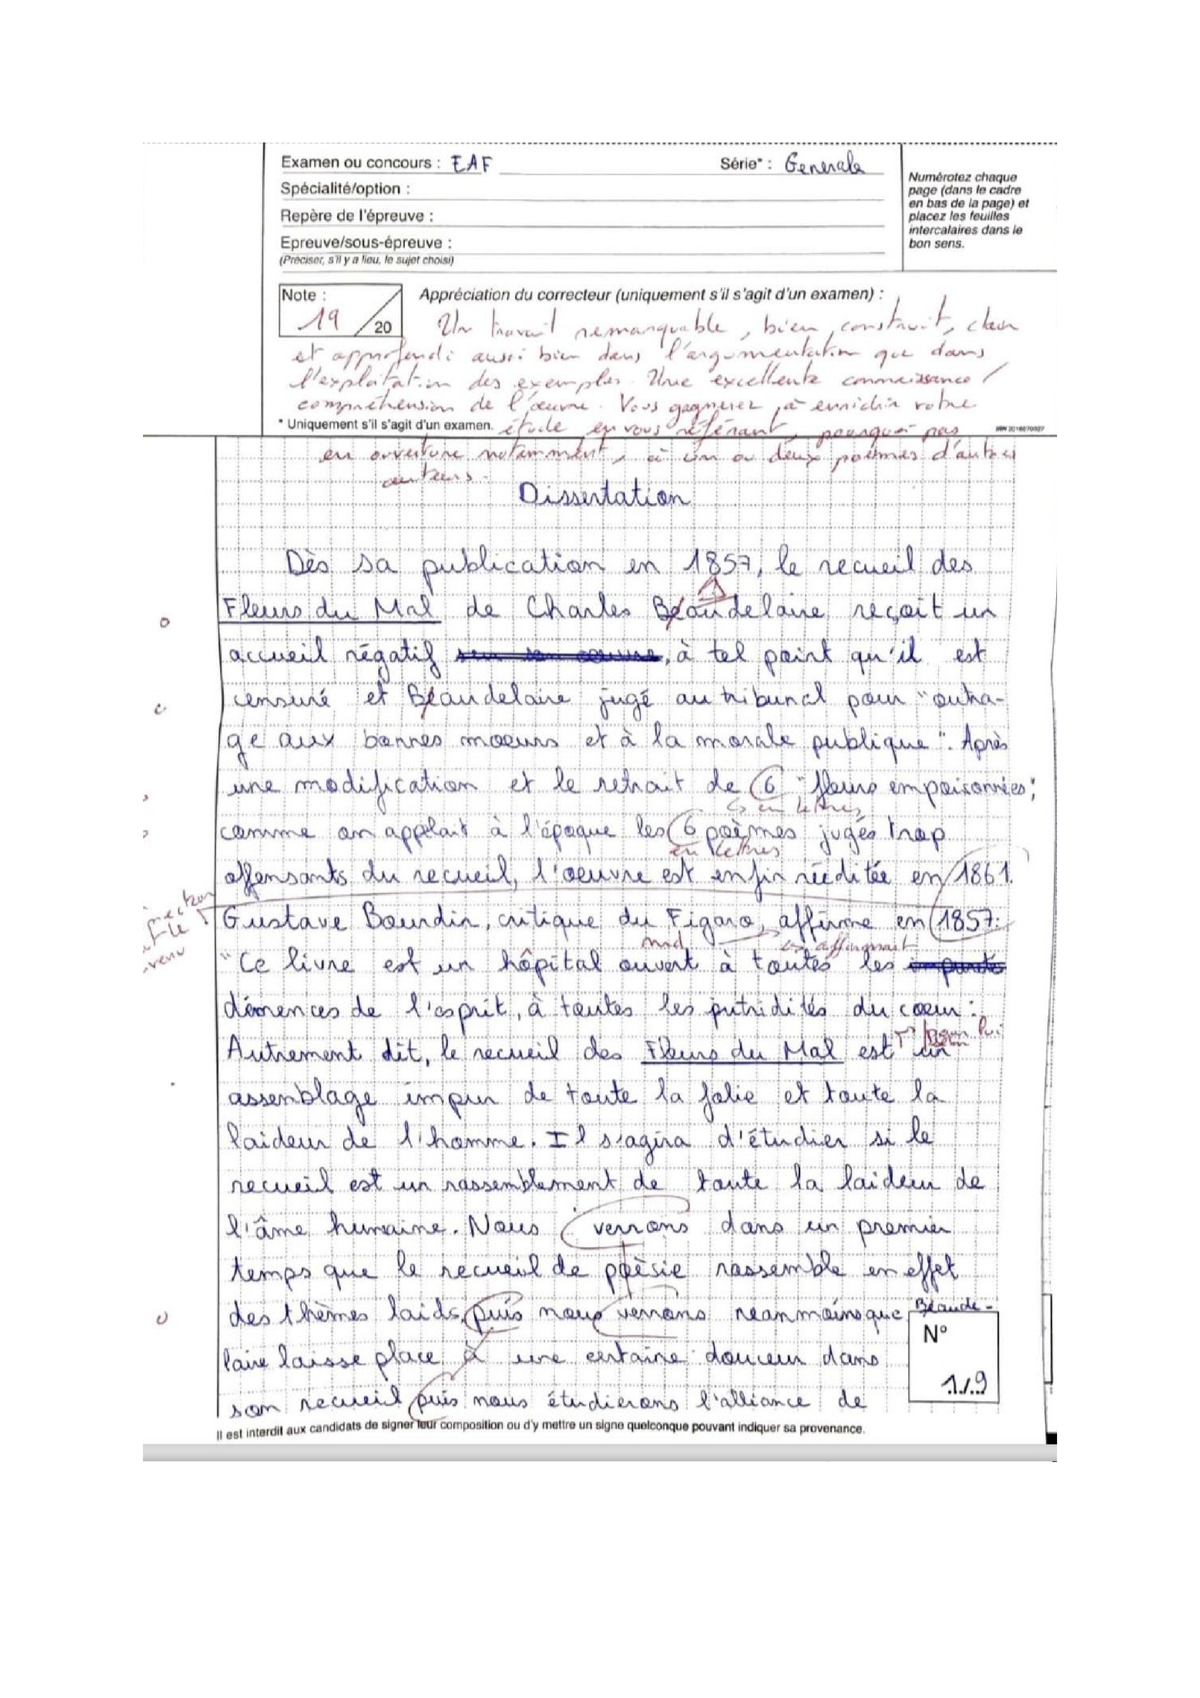 Examen ou concours : EAF Série* : Generale
Spécialité/option :
Repère de l'épreuve :
Epreuve/sous-épreuve :
(Préciser, s'il y a lieu, le sujet choisi)
Numérotez chaque
page (dans le cadre
en bas de la page) et
placez les feuilles
intercalaires dans le
bon sens.
Note :
19 / 20
Appréciation du correcteur (uniquement s'il s'agit d'un examen) :
Un travail remarquable, bien construit, clair
et approfondi aussi bien dans l'argumentation que dans
l'exploitation des exemples. Une excellente connaissance /
compréhension de l'œuvre. Vous gagnerez à enrichir votre
* Uniquement s'il s'agit d'un examen.
étude en vous référant, pourquoi pas
en ouverture notamment, à un ou deux poèmes d'autres
auteurs.
Dissertation
Dès sa publication en 1857, le recueil des
Fleurs du Mal de Charles Béaudelaire reçoit un
accueil négatif, à tel point qu'il est
censuré et Béaudelaire jugé au tribunal pour "outra-
ge aux bonnes moeurs et à la morale publique". Après
une modification et le retrait de 6 "fleurs empoisonnées",
↳ en lettres
comme on appelait à l'époque les 6 poèmes jugés trop
en lettres
offensants du recueil, l'oeuvre est enfin rééditée en 1861.
Gustave Bourdin, critique du Figaro, affirme en 1857:
↳ affirmait
"Ce livre est un hôpital ouvert à toutes les
démences de l'esprit, à toutes les putridités du coeur".
Autrement dit, le recueil des Fleurs du Mal est un
assemblage impur de toute la folie et toute la
laideur de l'homme. Il s'agira d'étudier si le
recueil est un rassemblement de toute la laideur de
l'âme humaine. Nous verrons dans un premier
temps que le recueil de poèsie rassemble en effet
des thèmes laids, puis nous verrons néanmoins que Béaude-
laire laisse place à une certaine douceur dans
son recueil puis nous étudierons l'alliance de
N°
1/9
Il est interdit aux candidats de signer leur composition ou d'y mettre un signe quelconque pouvant indiquer sa provenance.